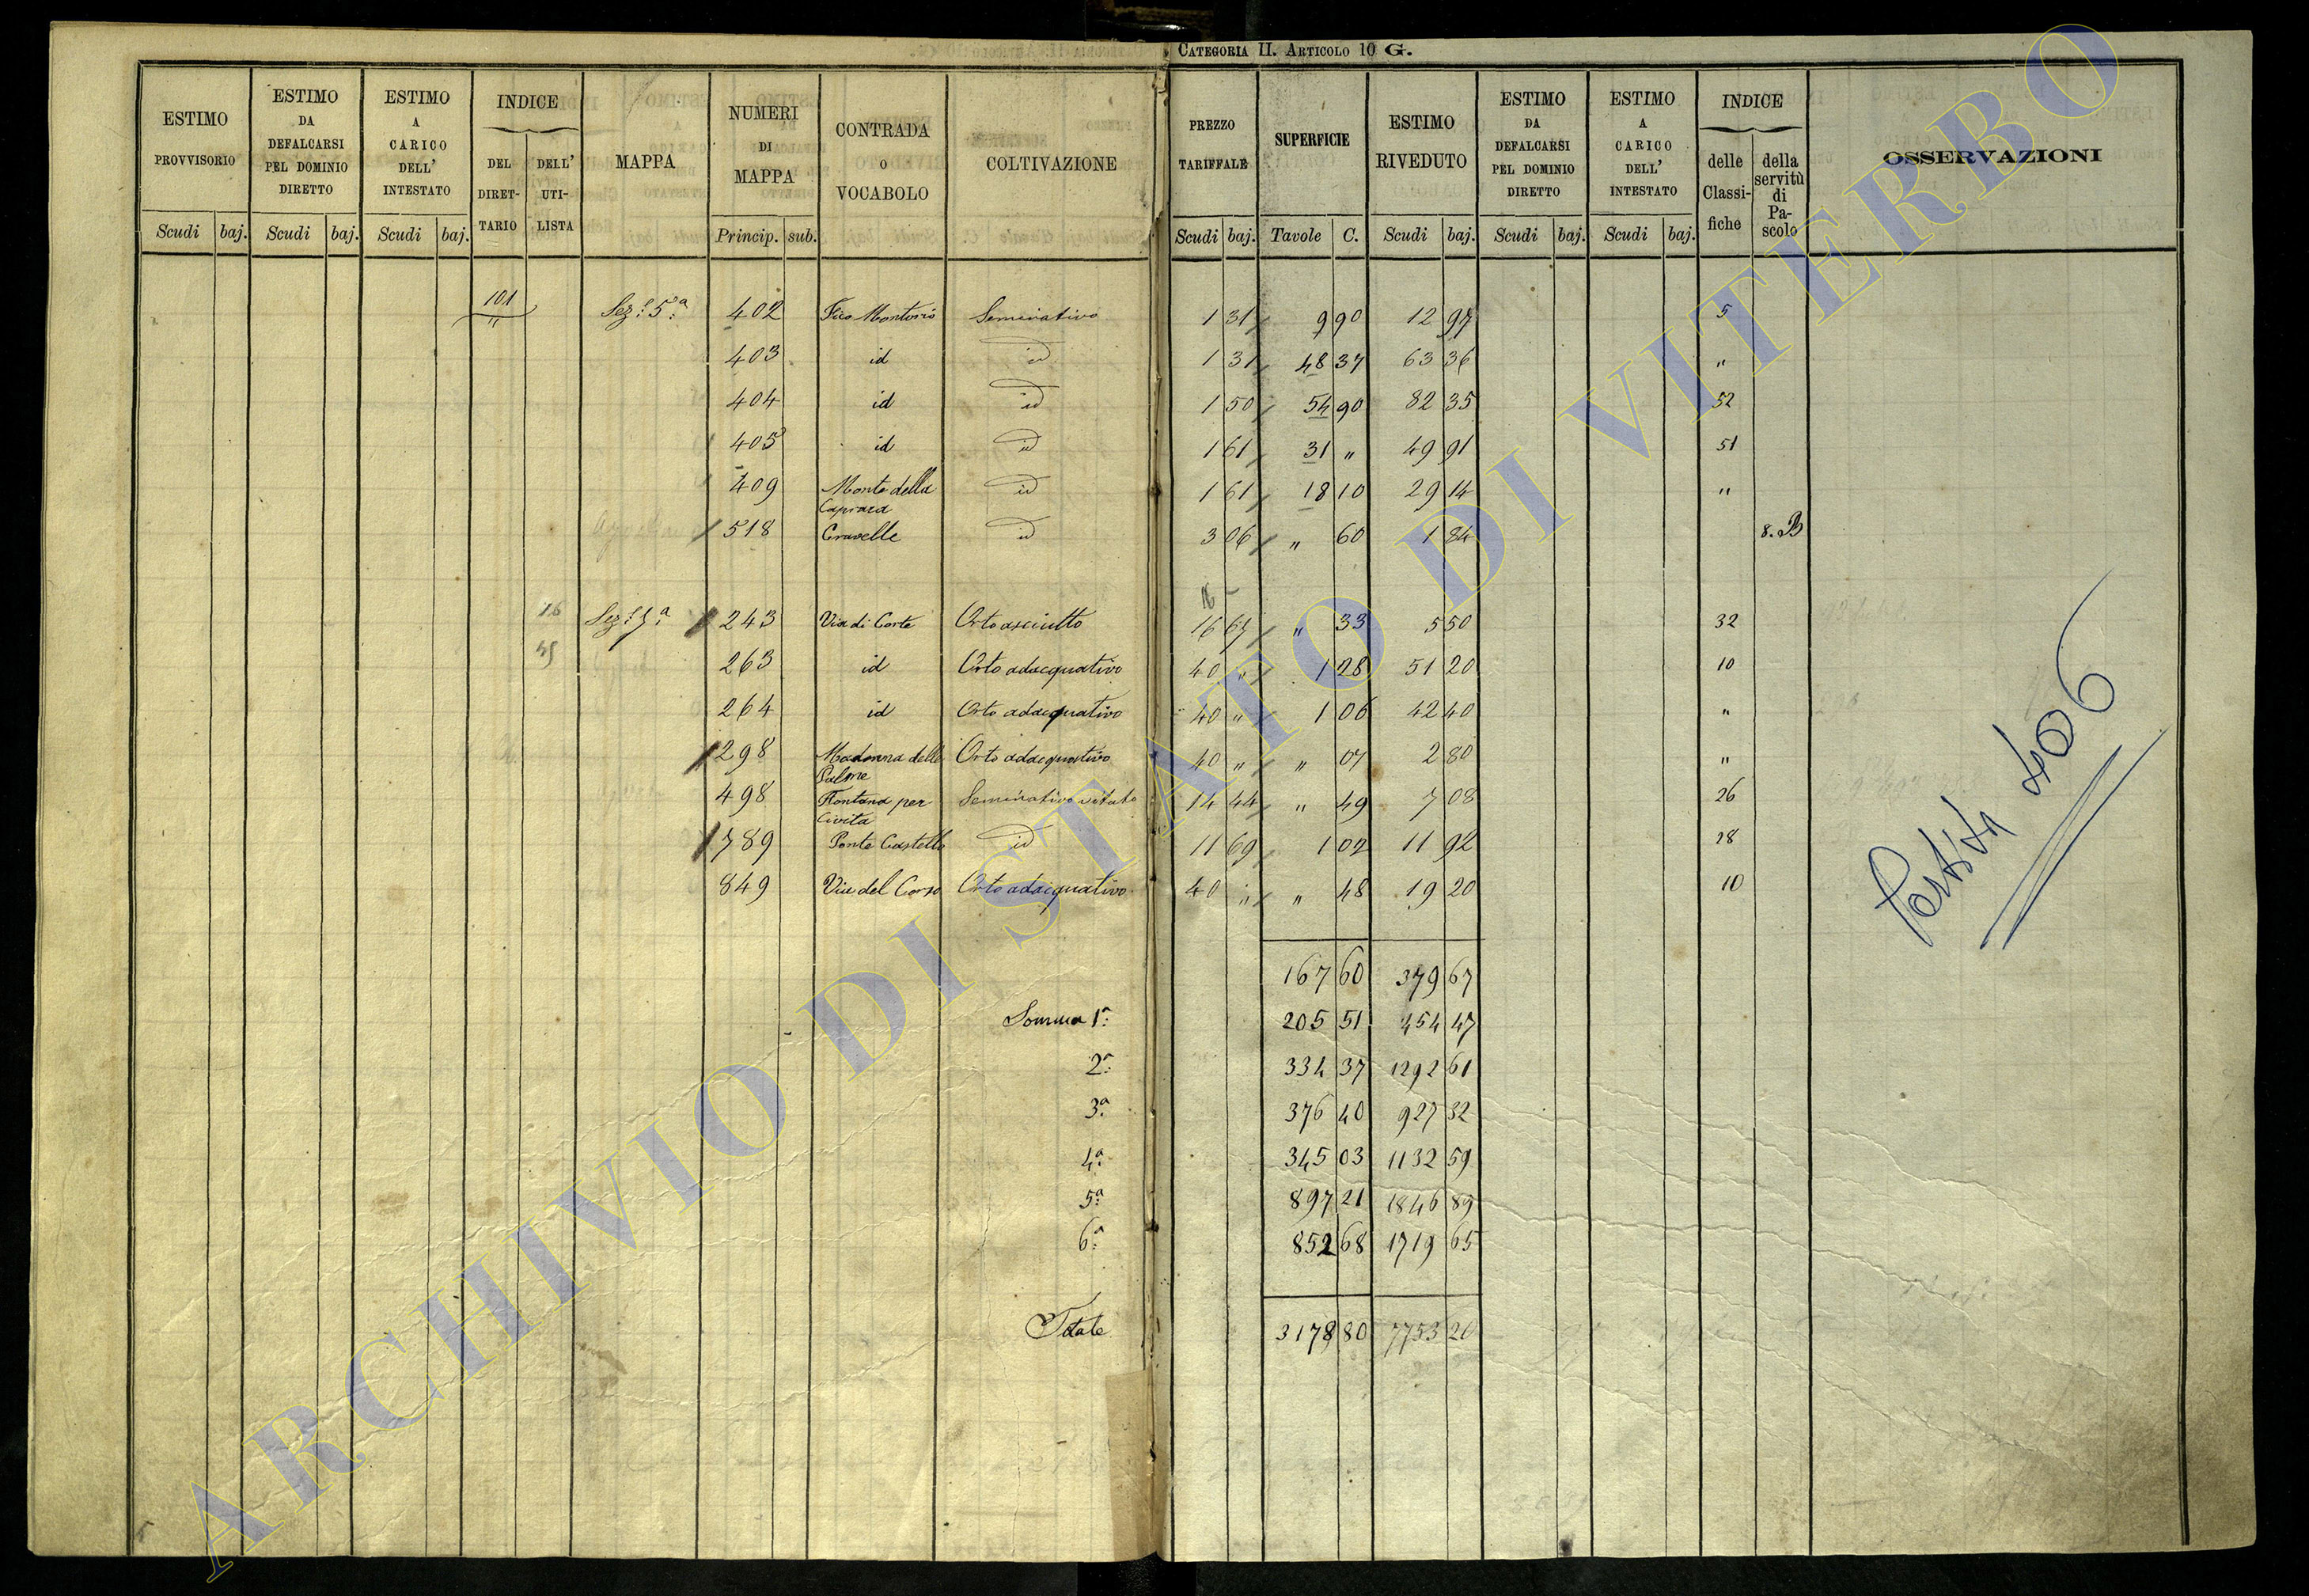 CATEGORIA II. ARTICOLO 10 G.
ESTIMO PROVVISORIO
Scudi baj.
ESTIMO DA DEFALCARSI PEL DOMINIO DIRETTO
Scudi baj.
ESTIMO A CARICO DELL' INTESTATO
Scudi baj.
INDICE
DEL DIRET-TARIO
DELL' UTI-LISTA
MAPPA
NUMERI DI MAPPA
Princip. sub.
CONTRADA O VOCABOLO
COLTIVAZIONE
PREZZO TARIFFALE
Scudi baj.
SUPERFICIE
Tavole C.
ESTIMO RIVEDUTO
Scudi baj.
ESTIMO DA DEFALCARSI PEL DOMINIO DIRETTO
Scudi baj.
ESTIMO A CARICO DELL' INTESTATO
Scudi baj.
INDICE
delle Classi-fiche
della servitù di Pa-scolo
OSSERVAZIONI
101 Sez: 5ª 402 Fico Montorio Seminativo 1 31 9 90 12 97 5
403 id id 1 31 48 37 63 36 "
404 id id 1 50 54 90 82 35 52
405 id id 1 61 31 " 49 91 51
409 Monte della Capraia id 1 61 18 10 29 14 "
518 Cravelle id 3 06 " 60 1 84 8. B
16 Sez: 7ª 243 Via di Corte Orto asciutto 16 67 " 33 5 50 32
263 id Orto adacquativo 40 " 1 28 51 20 10
264 id Orto adacquativo 40 " 1 06 42 40 "
298 Madonna delle Palme Orto adacquativo 40 " " 07 2 80 "
498 Fontana per Civita Seminativo vitato 14 44 " 49 7 08 26
789 Ponte Castello id 11 69 1 02 11 92 28
849 Via del Corso Orto adacquativo 40 " " 48 19 20 10
167 60 379 67
Somma 1ª 205 51 454 47
2ª 334 37 1292 61
3ª 376 40 927 32
4ª 345 03 1132 59
5ª 897 21 1846 89
6ª 852 68 1719 65
Totale 3178 80 7753 20
Partita 406
ARCHIVIO DI STATO DI VITERBO